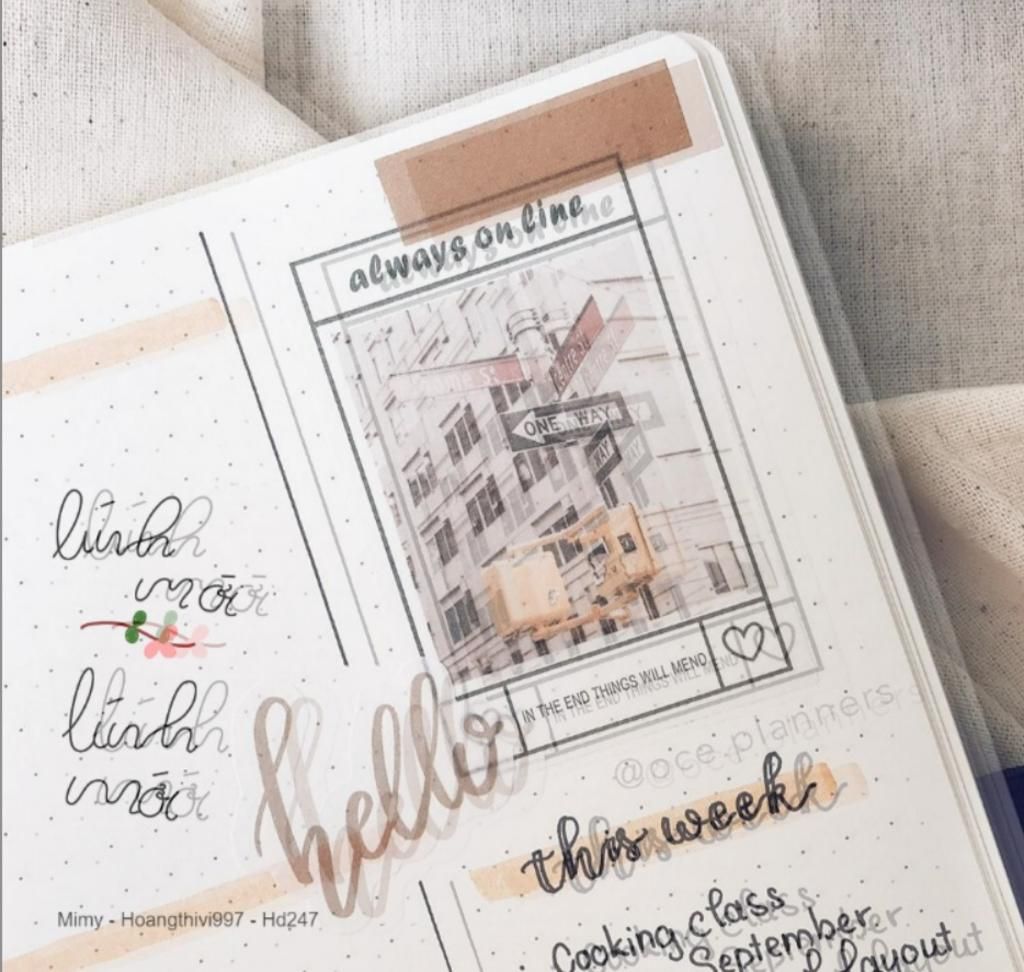 always on line
ONE WAY
WAY
lính
mới
lính
mới
IN THE END THINGS WILL MEND
hello
@ose.planners
this week
Cooking class
September
layout
Mimy - Hoangthivi997 - Hd247